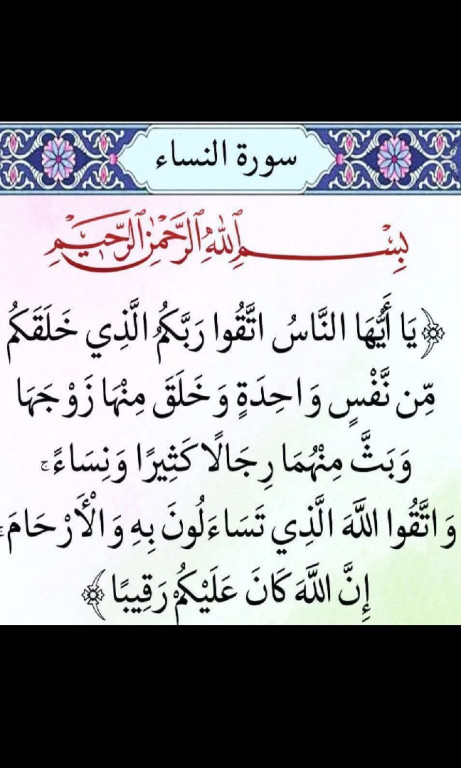 سورة النساء
بِسْمِ ٱللَّهِ ٱلرَّحْمَٰنِ ٱلرَّحِيمِ
﴿يَا أَيُّهَا النَّاسُ اتَّقُوا رَبَّكُمُ الَّذِي خَلَقَكُم
مِّن نَّفْسٍ وَاحِدَةٍ وَخَلَقَ مِنْهَا زَوْجَهَا
وَبَثَّ مِنْهُمَا رِجَالًا كَثِيرًا وَنِسَاءً ۚ
وَاتَّقُوا اللَّهَ الَّذِي تَسَاءَلُونَ بِهِ وَالْأَرْحَامَ ۚ
إِنَّ اللَّهَ كَانَ عَلَيْكُمْ رَقِيبًا﴾